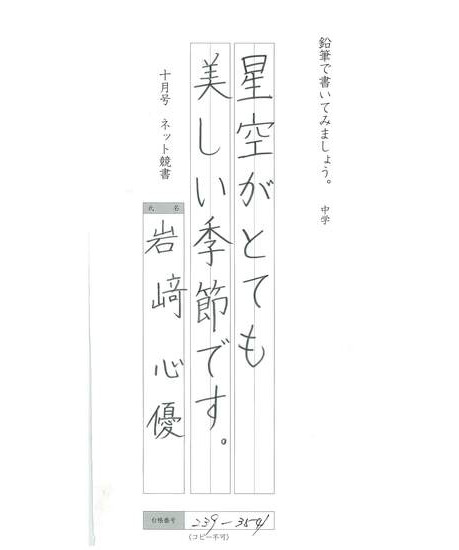 鉛筆で書いてみましょう。 中学
星空がとても
美しい季節です。
十月号 ネット競書
氏 名
岩﨑 心優
合格番号
239-3541
(コピー不可)